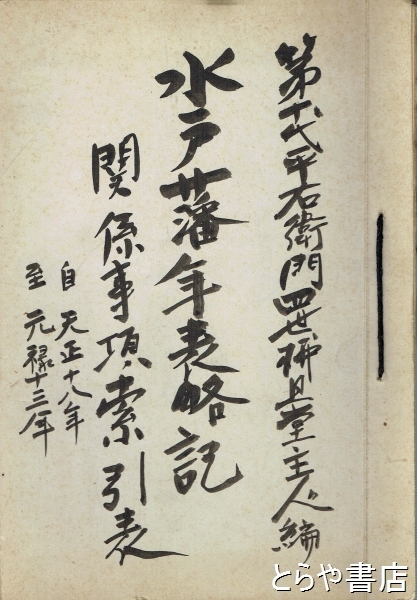 第十代平右衛門四世 堂主人編
水戸藩年表略記
関係事項索引表
自 天正十八年
至 元禄十三年
とらや書店